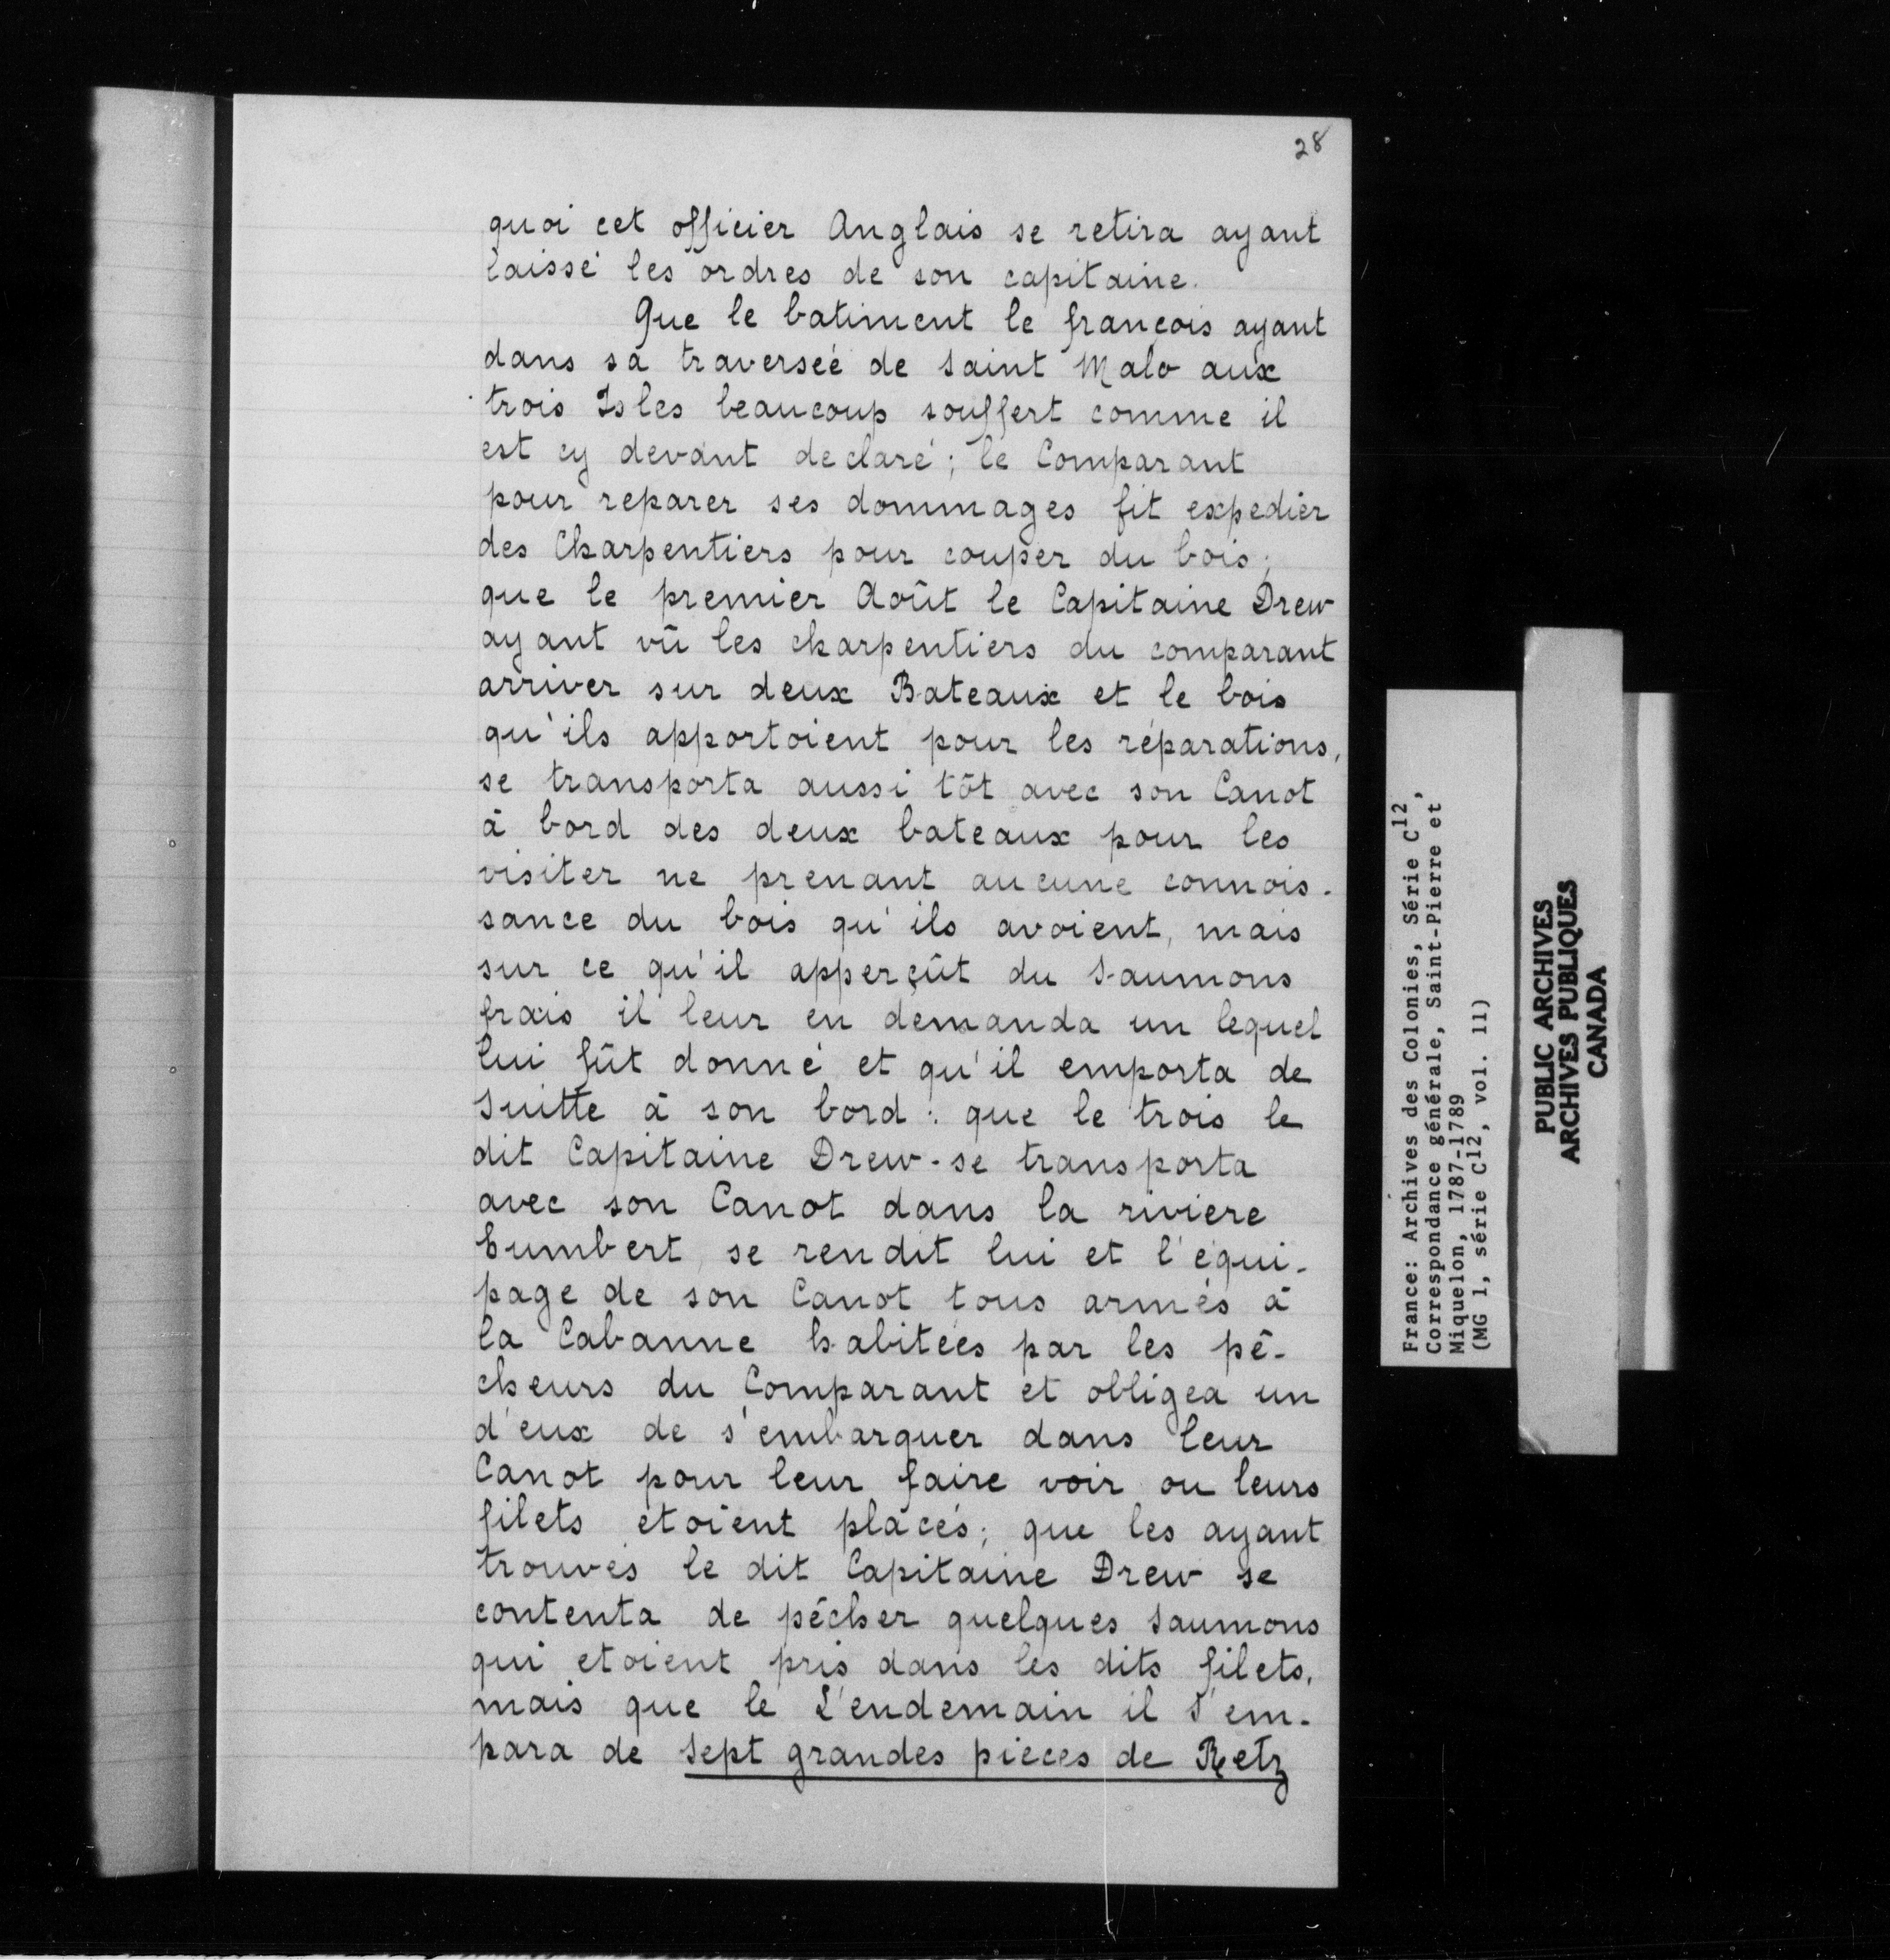 28
quoi cet officier Anglais se retira ayant
laissé les ordres de son capitaine.
Que le batiment le françois ayant
dans sa traverseé de Saint Malo aux
trois Isles beaucoup souffert comme il
est cy devant declaré; le Comparant
pour reparer ses dommages fit expedier
des Charpentiers pour couper du bois;
que le premier Août le Capitaine Drew
ayant vû les charpentiers du comparant
arriver sur deux Bateaux et le bois
qu'ils apportoient pour les réparations,
se transporta aussi tôt avec son Canot
à bord des deux bateaux pour les
visiter ne prenant aucune connois-
sance du bois qu'ils avoient, mais
sur ce qu'il apperçût du Saumons
frais il leur en demanda un lequel
lui fût donné et qu'il emporta de
Suitte à son bord: que le trois le
dit Capitaine Drew-se transporta
avec son Canot dans la riviere
Eumbert, se rendit lui et l'équi-
page de son Canot tous armés à
la Cabanne habitées par les pê-
cheurs du Comparant et obligea un
d'eux de s'embarquer dans leur
Canot pour leur faire voir ou leurs
filets etoient placés; que les ayant
trouvés le dit Capitaine Drew se
contenta de pêcher quelques Saumons
qui etoient pris dans les dits filets,
mais que le L'endemain il S'em-
para de Sept grandes pieces de Retz
France: Archives des Colonies, Série C12,
Correspondance générale, Saint-Pierre et,
Miquelon, 1787-1789
(MG 1, série C12, vol. 11)
PUBLIC ARCHIVES
ARCHIVES PUBLIQUES
CANADA